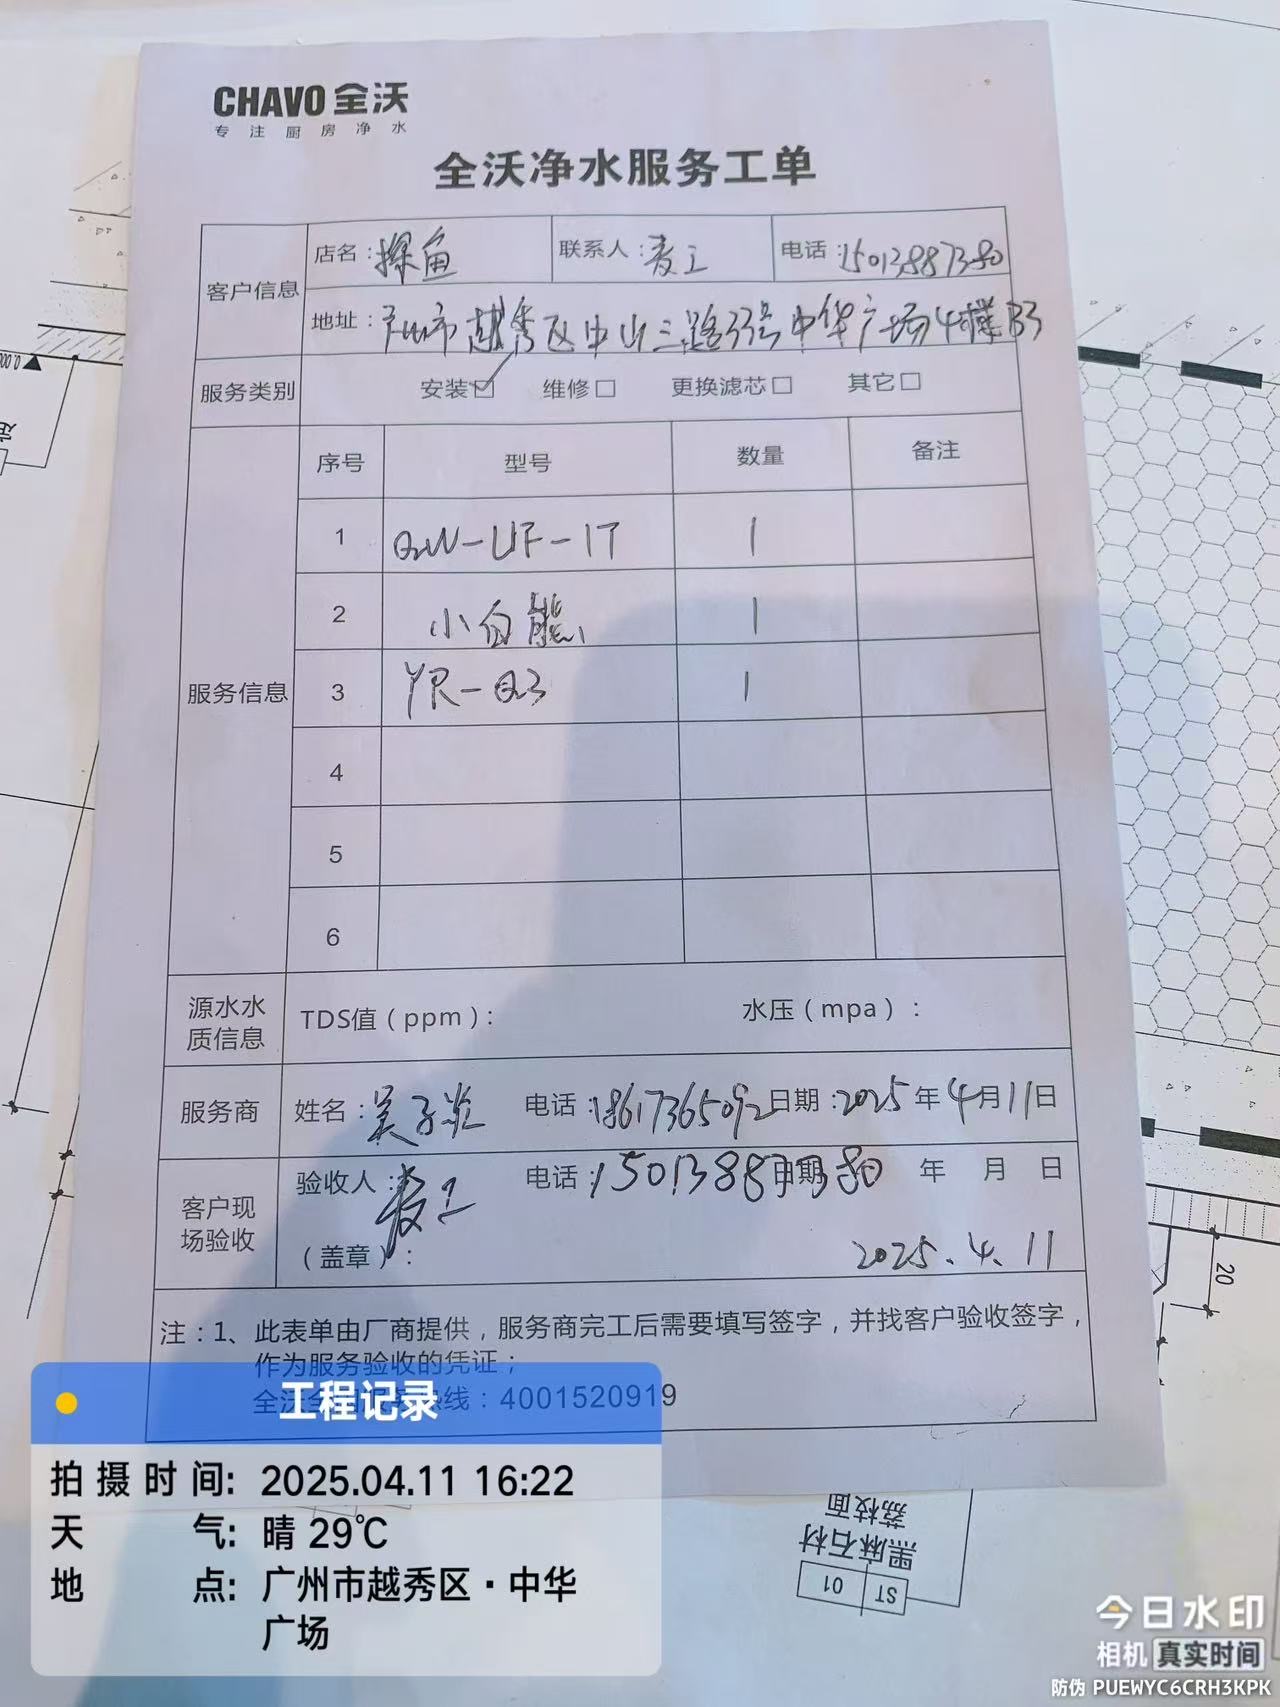 CHAVO 全沃
专注厨房净水
全沃净水服务工单
客户信息
店名：探鱼 联系人：麦工 电话：15013887380
地址：广州市越秀区中山三路33号中华广场4楼B3
服务类别 安装☑ 维修□ 更换滤芯□ 其它□
服务信息
序号 型号 数量 备注
1 QW-UF-1T 1
2 小白熊 1
3 YR-Q3 1
4
5
6
源水水质信息 TDS值（ppm）： 水压（mpa）：
服务商 姓名：吴子 电话：18617365092 日期：2025年4月11日
客户现场验收 验收人：麦工 电话：15013887380 日期 年 月 日
（盖章）： 2025.4.11
注：1、此表单由厂商提供，服务商完工后需要填写签字，并找客户验收签字，
作为服务验收的凭证；
全沃 热线：4001520919
工程记录
拍摄时间: 2025.04.11 16:22
天气: 晴 29℃
地点: 广州市越秀区·中华
广场
20
荔枝面
黑麻石材
ST 01
0.000
今日水印
相机 真实时间
防伪 PUEWYC6CRH3KPK